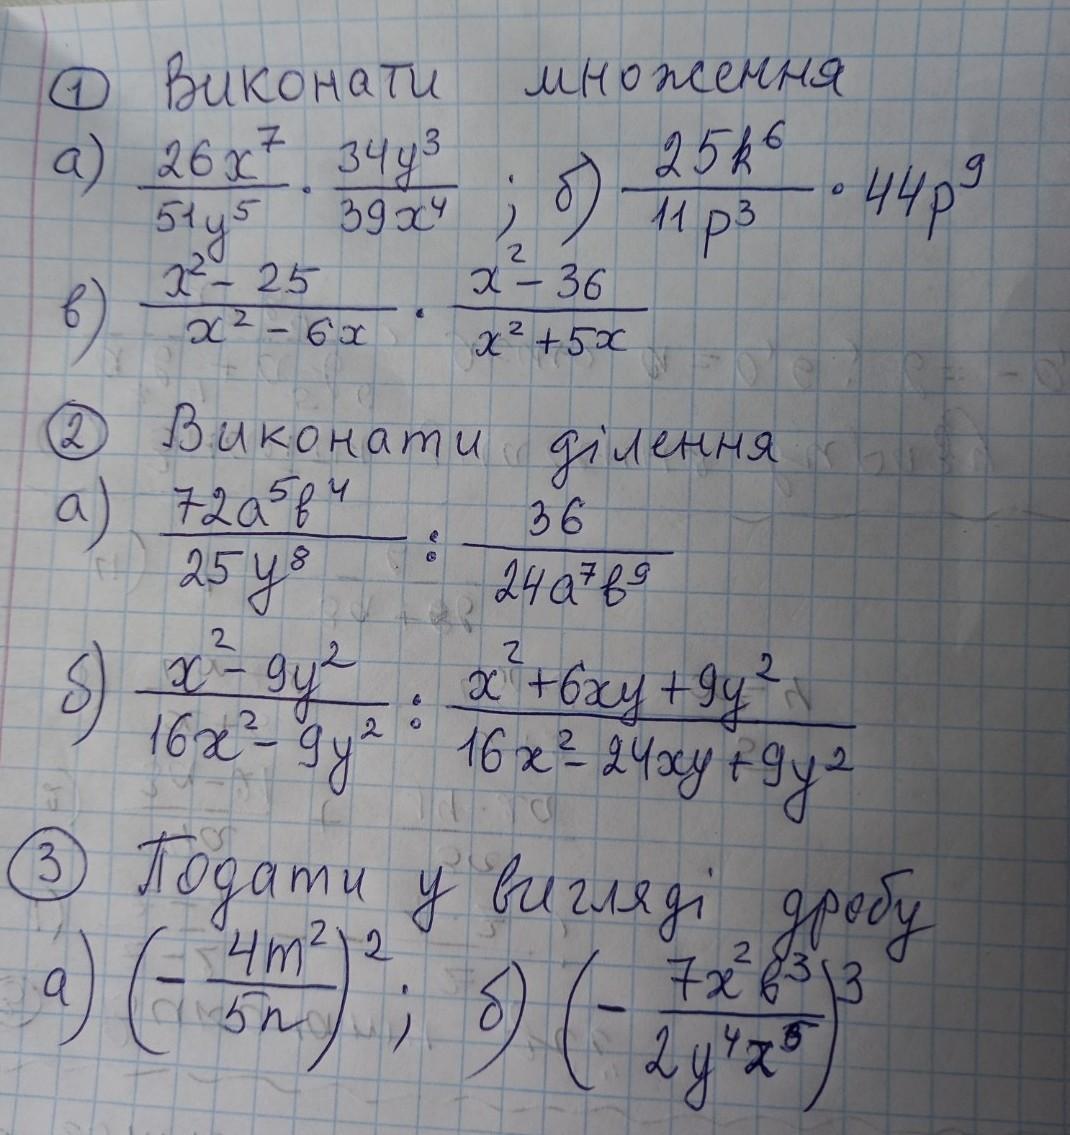 ① Виконати множення
а) 26x⁷/51y⁵ · 34y³/39x⁴ ; б) 25k⁶/11p³ · 44p⁹
в) x² - 25/x² - 6x · x² - 36/x² + 5x
② Виконати ділення
а) 72a⁵b⁴/25y⁸ : 36/24a⁷b⁹
б) x² - 9y²/16x² - 9y² : x² + 6xy + 9y²/16x² - 24xy + 9y²
③ Подати у вигляді дробу
а) (- 4m²/5n)² ; б) (- 7x²b³/2y⁴x⁵)³